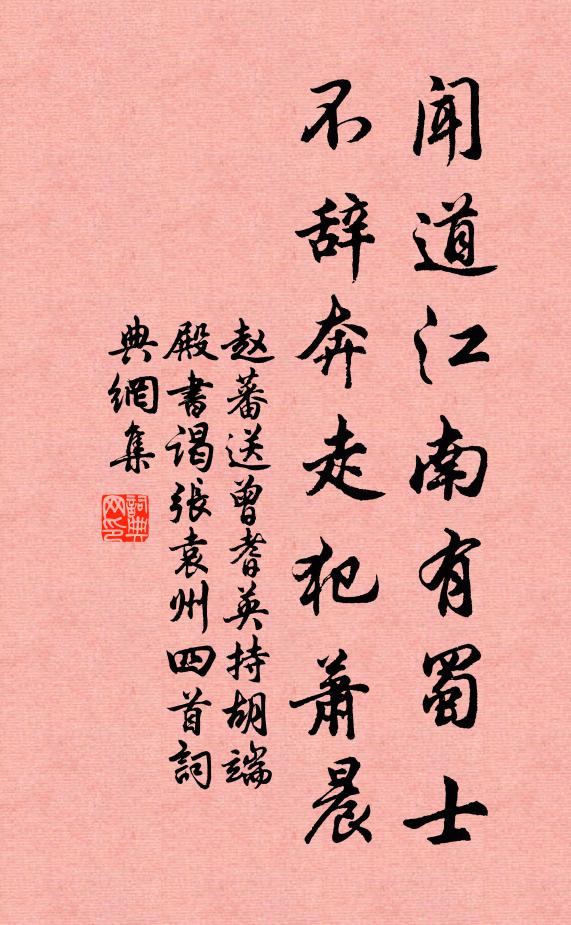 闻道江南有蜀士
不辞奔走犯萧晨
赵蕃送曾耆英持胡端
殿書谒張袁州四首詞
典網集
詞典
网印